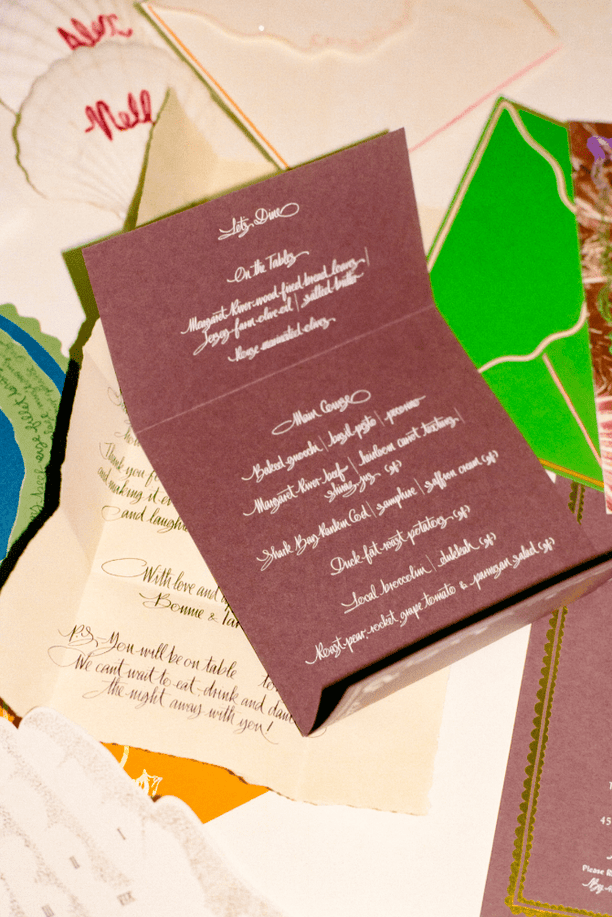 Alex
Nell
Let's Dine
On the Tables
Margaret River wood-fired bread loaves |
Jersey farm olive oil | salted butter
House marinated olives
Main Course
Baked gnocchi | basil pesto | pecorino
Margaret River beef | heirloom carrot textures |
shiraz jus (gf)
Shark Bay Rankin Cod | samphire | saffron cream (gf)
Duck-fat roast potatoes (gf)
Local broccolini | dukkah (gf)
Roast pear, rocket, grape tomato & parmesan salad (gf)
Thank you f
and making it e
and laugh
With love and
Bonnie &
P.S. You will be on table
We can't wait to eat, drink and dan
the night away with you!
45
Please R